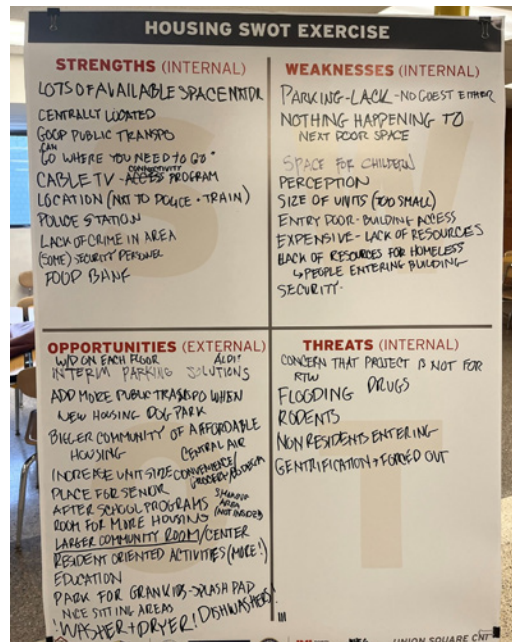 HOUSING SWOT EXERCISE
STRENGTHS (INTERNAL)
LOTS OF AVAILABLE SPACE
CENTRALLY LOCATED
GOOD PUBLIC TRANSPO
CAN
GO WHERE YOU NEED TO GO
CONNECTIVITY
CABLE TV - ACCESS PROGRAM
LOCATION (NOT TO POLICE + TRAIN)
POLICE STATION
LACK OF CRIME IN AREA
(SOME) SECURITY PERSONEL
FOOD BANK
WEAKNESSES (INTERNAL)
PARKING - LACK - NO GUEST EITHER
NOTHING HAPPENING TO
NEXT DOOR SPACE
SPACE FOR CHILDREN
PERCEPTION
SIZE OF UNITS (TOO SMALL)
ENTRY DOOR - BUILDING ACCESS
EXPENSIVE - LACK OF RESOURCES
LACK OF RESOURCES FOR HOMELESS
↳ PEOPLE ENTERING BUILDING
SECURITY
OPPORTUNITIES (EXTERNAL)
W/D ON EACH FLOOR ALDI?
INTERIM PARKING SOLUTIONS
ADD MORE PUBLIC TRANSPO WHEN
NEW HOUSING DOG PARK
BIGGER COMMUNITY OF AFFORDABLE
HOUSING CENTRAL AIR
INCREASE UNIT SIZE CONVENIENCE/
GROCERY/BODEGA
PLACE FOR SENIOR
AFTER SCHOOL PROGRAMS SMOKING
AREA
ROOM FOR MORE HOUSING (NOT INSIDE)
LARGER COMMUNITY ROOM/CENTER
RESIDENT ORIENTED ACTIVITIES (MORE!)
EDUCATION
PARK FOR GRANKIDS - SPLASH PAD
NICE SITTING AREAS
WASHER + DRYER! DISHWASHERS!
THREATS (INTERNAL)
CONCERN THAT PROJECT IS NOT FOR
RTW DRUGS
FLOODING
RODENTS
NON RESIDENTS ENTERING
GENTRIFICATION → FORCED OUT
UNION SQUARE